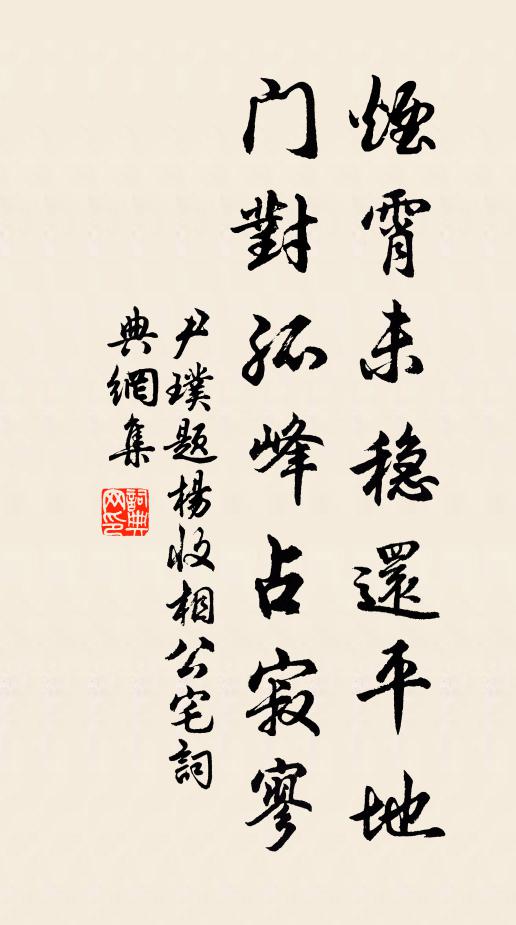 煙霄未穩還平地
门對孤峰占寂寥
尹璞題楊收相公宅詞
典網集
詞典
网印